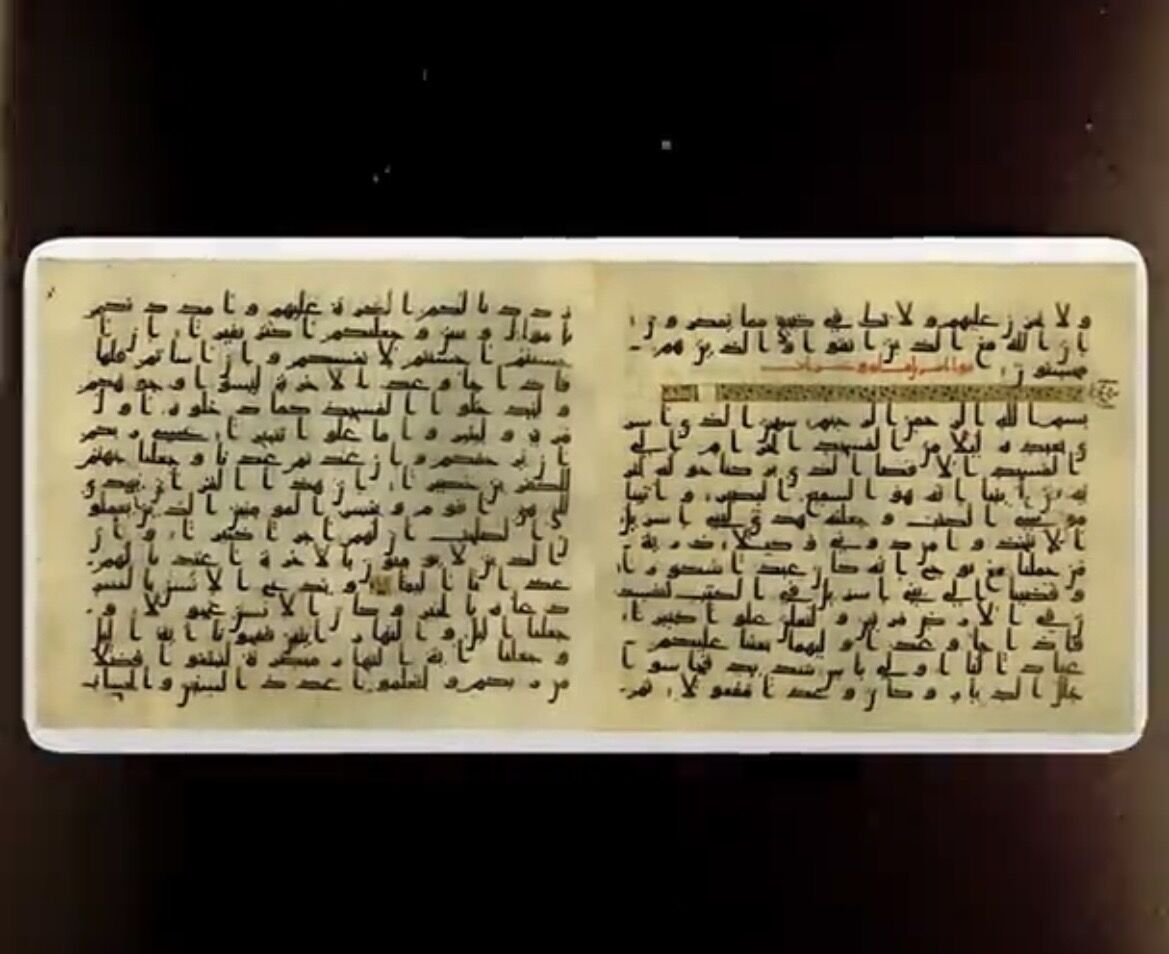 ولا تحزن عليهم ولا تك في ضيق مما يمكرون
ان الله مع الذين اتقوا والذين هم
محسنون
بسم الله الرحمن الرحيم سبحن الذي اسر
ى بعبده ليلا من المسجد الحرام الى
المسجد الاقصا الذي بركنا حوله لنر
يه من ايتنا انه هو السميع البصير واتينا
موسى الكتب وجعلنه هدى لبني اسريل
الا تتخذوا من دوني وكيلا ذرية
من حملنا مع نوح انه كان عبدا شكورا
وقضينا الى بني اسريل في الكتب لتفسد
ن في الارض مرتين ولتعلن علوا كبيرا
فاذا جا وعد اوليهما بعثنا عليكم
عبادا لنا اولي باس شديد فجاسوا
خلل الديار وكان وعدا مفعولا ثم
رددنا لكم الكرة عليهم وامددنكم
باموال وبنين وجعلنكم اكثر نفيرا ان ا
حسنتم احسنتم لانفسكم وان اساتم فلها
فاذا جا وعد الاخرة ليسوا وجوهكم
وليدخلوا المسجد كما دخلوه اول
مرة وليتبروا ما علوا تتبيرا عسى ربكم
ان يرحمكم وان عدتم عدنا وجعلنا جهنم
للكفرين حصيرا ان هذا القران يهدي
للتي هي اقوم ويبشر المومنين الذين يعملو
ن الصلحت ان لهم اجرا كبيرا وان
الذين لا يومنون بالاخرة اعتدنا لهم
عذابا اليما ويدع الانسن بالشر
دعاه بالخير وكان الانسن عجولا و
جعلنا اليل والنهار ايتين فمحونا اية اليل
وجعلنا اية النهار مبصرة لتبتغوا فضلا
من ربكم ولتعلموا عدد السنين والحساب